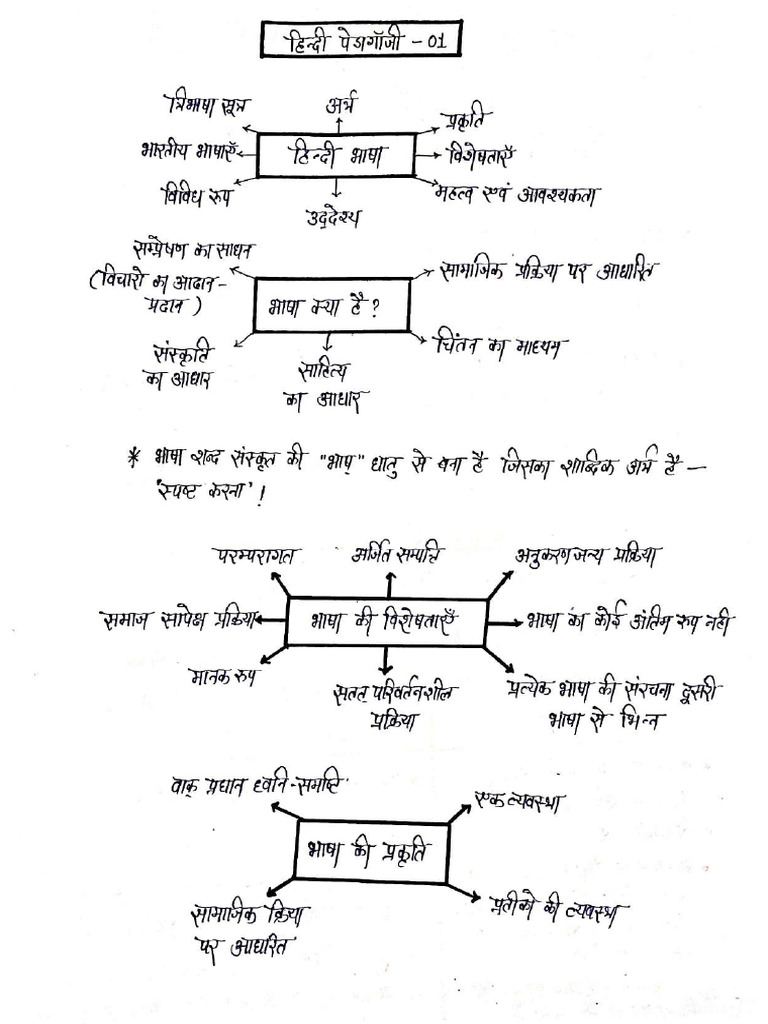 हिन्दी पेडागॉजी - 01
त्रिभाषा सूत्र
अर्थ
प्रकृति
भारतीय भाषाएँ
हिन्दी भाषा
विशेषताएँ
विविध रुप
महत्व एवं आवश्यकता
उद्देश्य
सम्प्रेषण का साधन
(विचारो का आदान-
प्रदान)
सामाजिक प्रक्रिया पर आधारित
भाषा क्या है?
चिंतन का माध्यम
संस्कृति
का आधार
साहित्य
का आधार
* भाषा शब्द संस्कृत की "भाष्" धातु से बना है जिसका शाब्दिक अर्थ है –
'स्पष्ट करना'!
परम्परागत
अर्जित सम्पत्ति
अनुकरणजन्य प्रक्रिया
समाज सापेक्ष प्रक्रिया
भाषा की विशेषताएँ
भाषा का कोई अंतिम रुप नही
मानक रुप
सतत् परिवर्तनशील
प्रक्रिया
प्रत्येक भाषा की संरचना दूसरी
भाषा से भिन्न
वाक् प्रधान ध्वनि-समष्टि
एक व्यवस्था
भाषा की प्रकृति
सामाजिक क्रिया
पर आधारित
प्रतीको की व्यवस्था